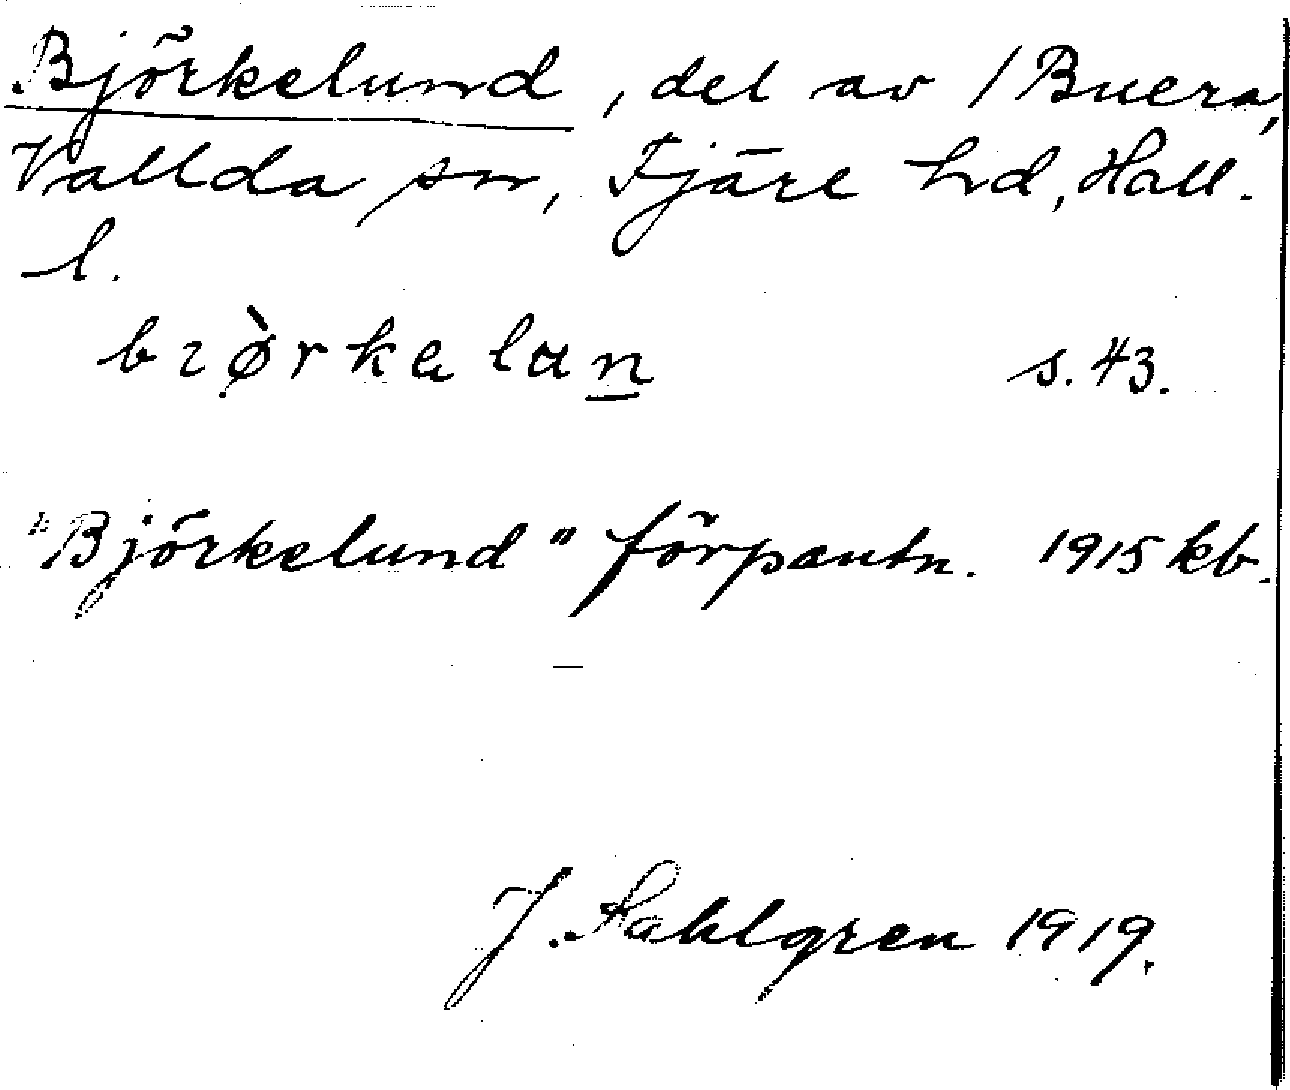 Björkelund, del av 1 Buera,
Vallda sn, Fjäre hd, Hall.
l.
bıø̀rkalun s. 43.
"Björkelund" förpantn. 1915 kb.
J. Sahlgren 1919.